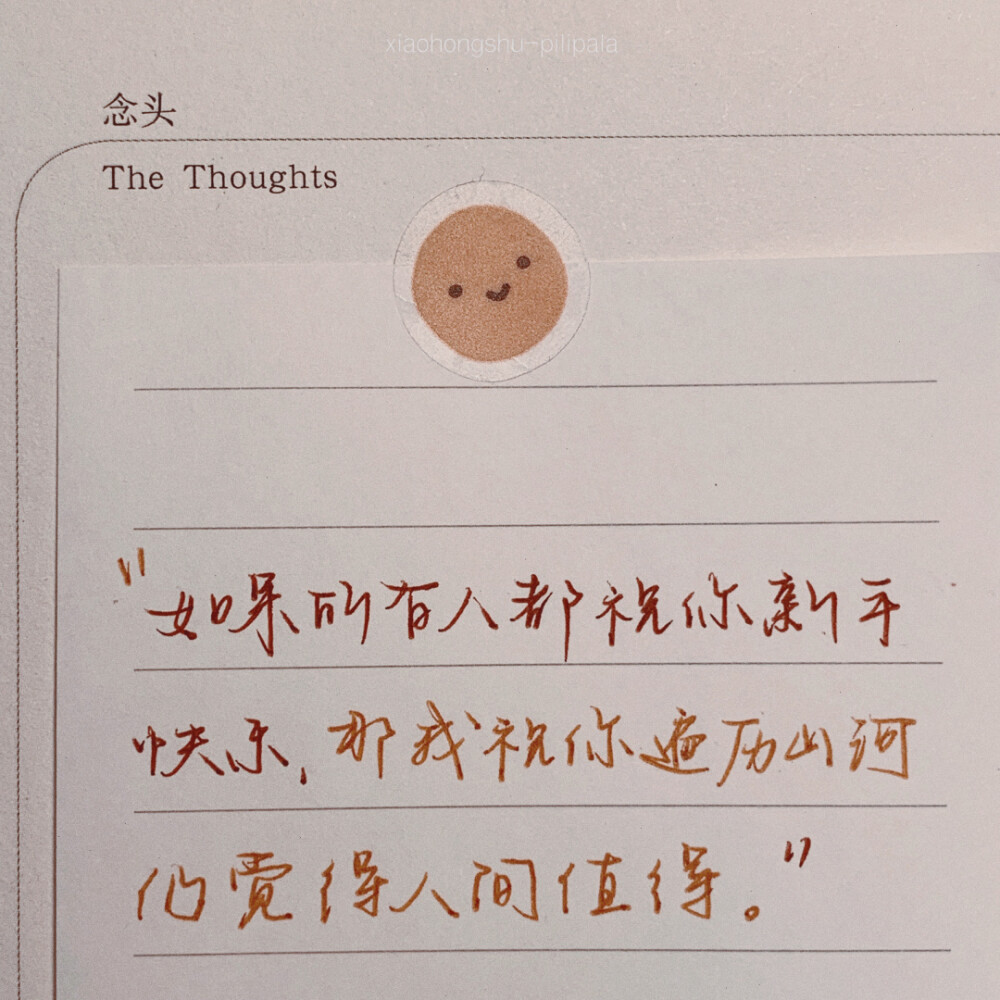 xiaohongshu--pilipala
念头
The Thoughts
"如果所有人都祝你新年
快乐,那我祝你遍历山河
仍觉得人间值得。"